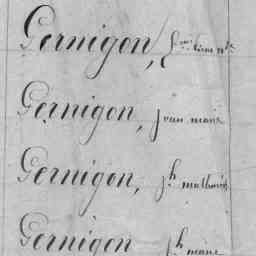 Gernigon,
Gernigon, jean marie
Gernigon, jh mathurin
Gernigon jh marie